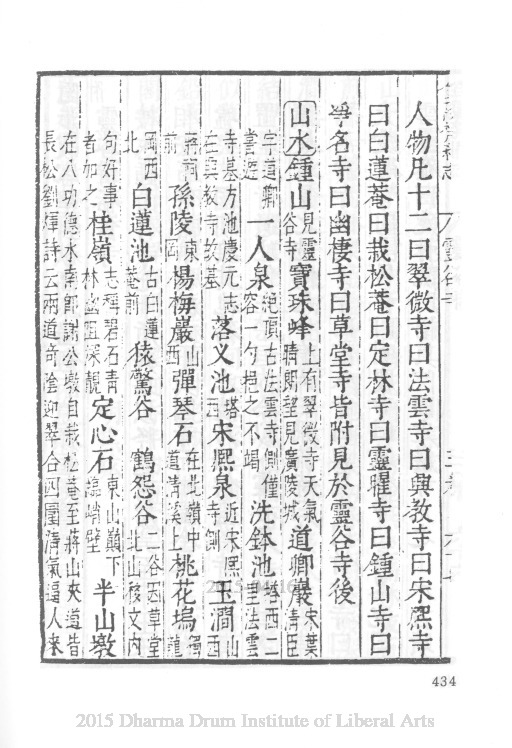 人物凡十二曰翠微寺曰法雲寺曰興教寺曰宋熈寺
曰白蓮菴曰栽松菴曰定林寺曰靈曜寺曰鍾山寺曰
爭名寺曰幽棲寺曰草堂寺皆附見於靈谷寺後
山水鍾山見靈谷寺寶珠峰上有翠微寺天氣晴朗望見廣陵城道卿巖宋葉清臣
字道卿嘗遊一人泉絶頂古法雲寺側僅容一勺挹之不竭洗鉢池塔西二里法雲
寺基方池慶元志在興教寺故基落叉池塔西宋熈泉近宋熈寺側玉澗山西
蔣祠前孫陵東岡楊梅巖山西彈琴石在北嶺中道清溪上桃花塢獨龍
岡西北白蓮池古白蓮菴前猿驚谷鶴怨谷二谷因草堂北山移文内
句好事者如之桂嶺志稱碧石青林幽阻深靚定心石東山巔下臨峭壁半山墩
在八功德水南郎謝公墩自栽松菴至蔣山夾道皆長松劉煇詩云兩道奇陰迎翠合四圍清氣逼人來
434
2015 Dharma Drum Institute of Liberal Arts